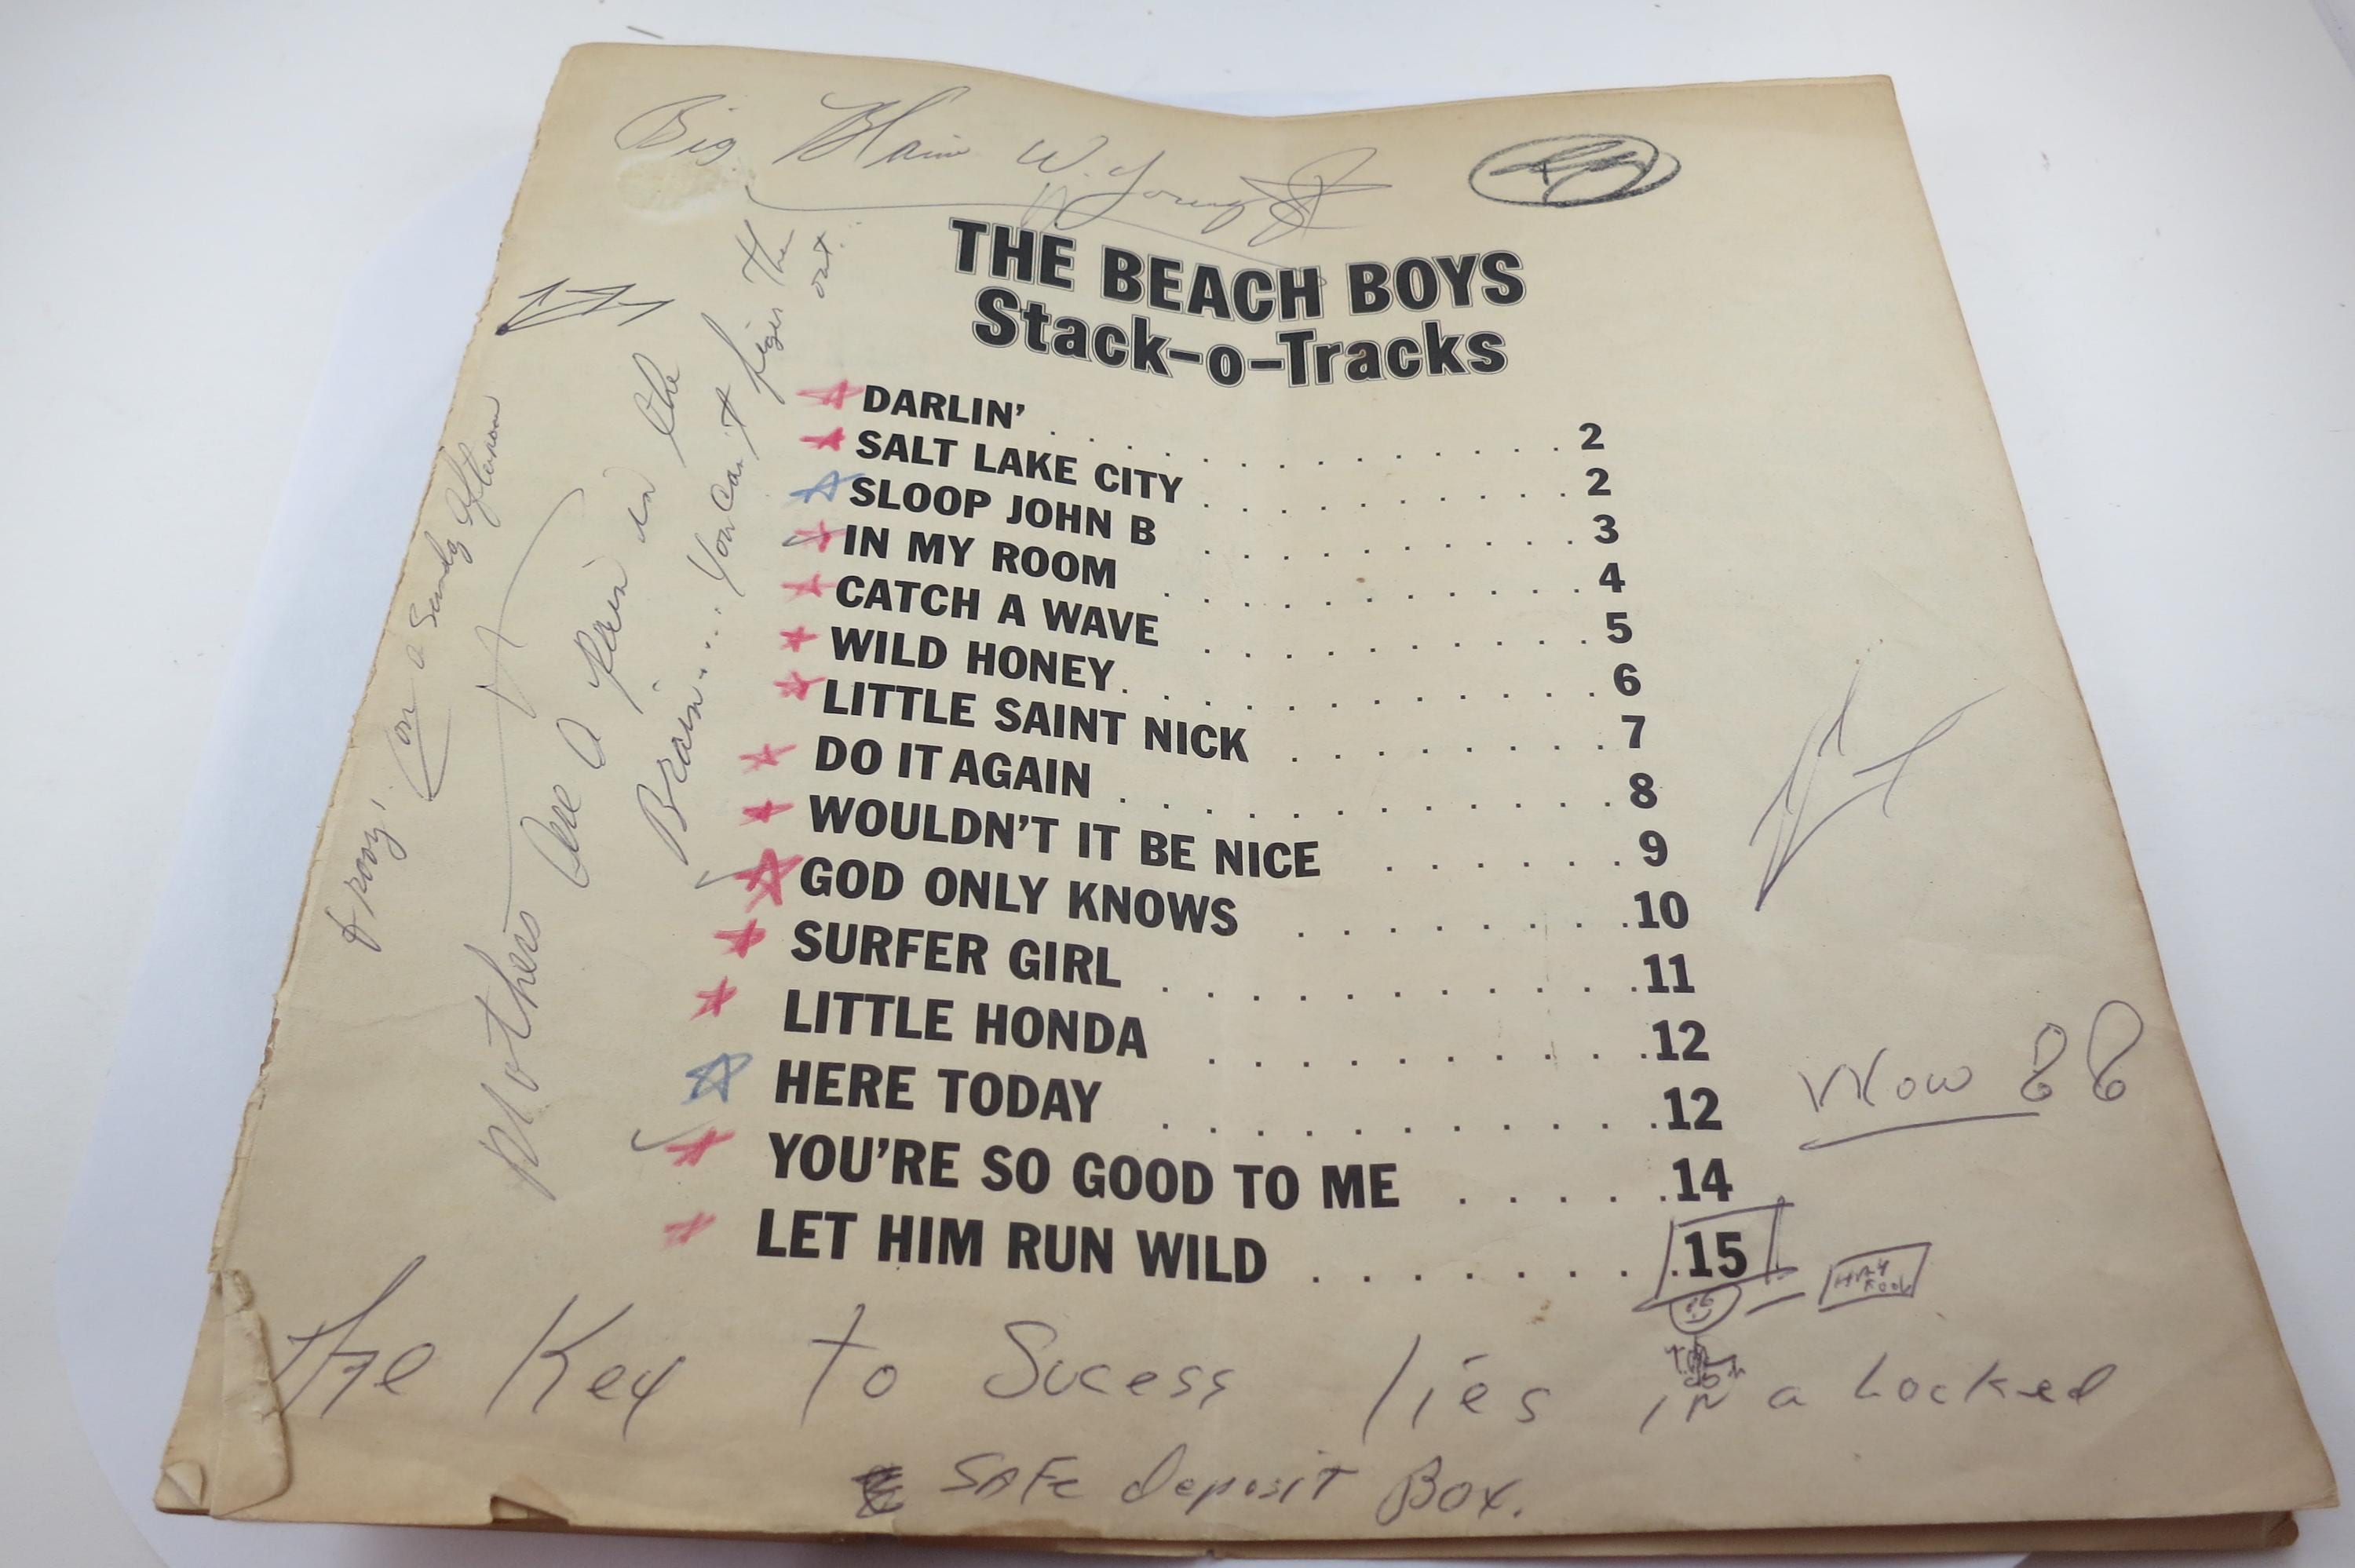 Big Blain W. Young
THE BEACH BOYS
Stack-o-Tracks
DARLIN' . . . . . . . . . . . . . . 2
SALT LAKE CITY . . . . . . . . . . 2
SLOOP JOHN B . . . . . . . . . . 3
IN MY ROOM . . . . . . . . . . . 4
CATCH A WAVE . . . . . . . . . . 5
WILD HONEY . . . . . . . . . . . 6
LITTLE SAINT NICK . . . . . . . . 7
DO IT AGAIN . . . . . . . . . . . 8
WOULDN'T IT BE NICE . . . . . . 9
GOD ONLY KNOWS . . . . . . . . 10
SURFER GIRL . . . . . . . . . . . 11
LITTLE HONDA . . . . . . . . . . 12
HERE TODAY . . . . . . . . . . . 12
YOU'RE SO GOOD TO ME . . . . . 14
LET HIM RUN WILD . . . . . . . . 15
on a Sunday
Mothers are a pain in the
Brain.... You can't figer the
out.
Wow
The Key to Sucess lies in a Locked
SAFe deposit Box.